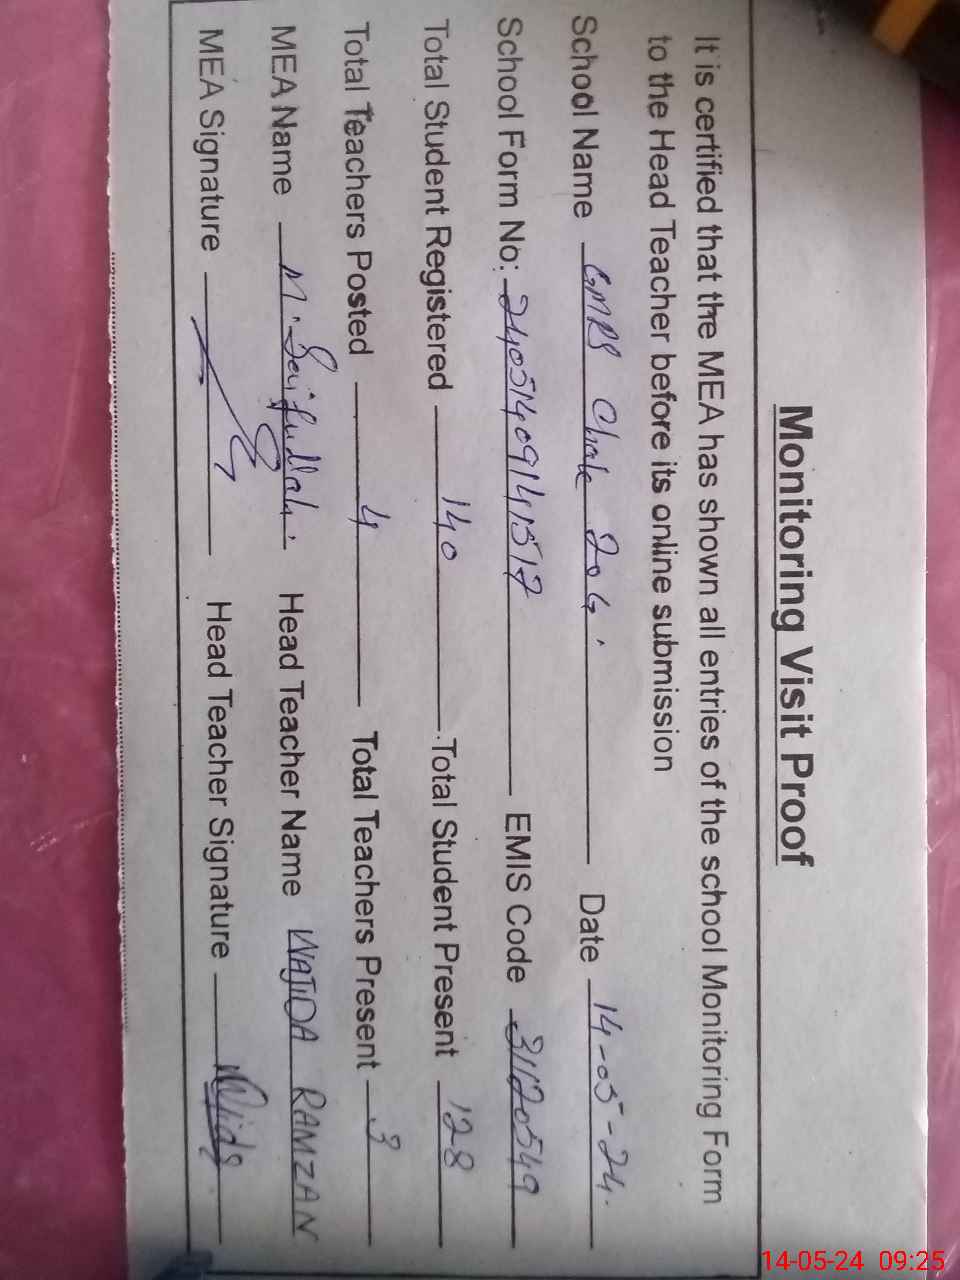 Monitoring Visit Proof
It is certified that the MEA has shown all entries of the school Monitoring Form
to the Head Teacher before its online submission
School Name GMRS Chak 204. Date 14-05-24.
School Form No: 24051409141517 EMIS Code 31120549
Total Student Registered 140 Total Student Present 128
Total Teachers Posted 4 Total Teachers Present 3
MEA Name M. Saifullah. Head Teacher Name WAJIDA RAMZAN
MEA Signature Head Teacher Signature
14-05-24 09:25